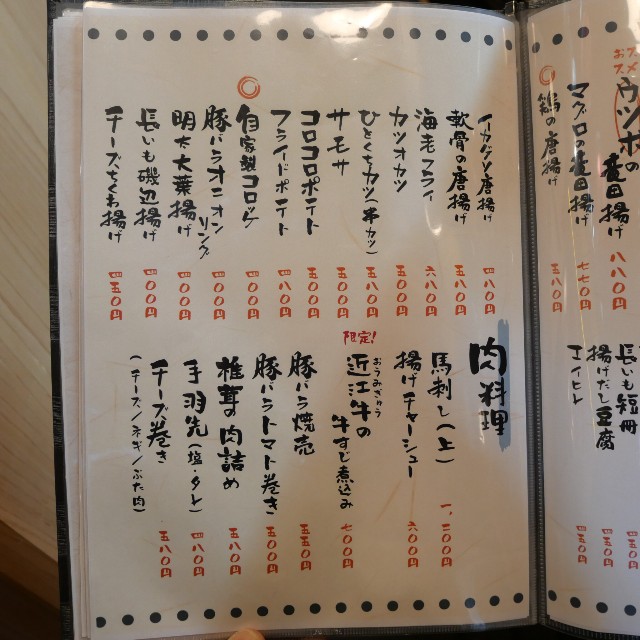 おススメ
ウツボの唐揚げ
八八〇円
マグロの竜田揚げ
七七〇円
鶏の唐揚げ
長いも短冊
揚げだし豆腐
エイヒレ
イカゲソ唐揚げ
四八〇円
軟骨の唐揚げ
五八〇円
海老フライ
六八〇円
カツオカツ
五〇〇円
ひとくちカツ(串カツ)
五八〇円
サモサ
五〇〇円
コロコロポテト
五〇〇円
フライドポテト
四八〇円
自家製コロッケ
四〇〇円
豚バラオニオンリング
四〇〇円
明太大葉揚げ
四〇〇円
長いも磯辺揚げ
四〇〇円
チーズちくわ揚げ
四五〇円
肉料理
馬刺し(上)
一、二〇〇円
揚げチャーシュー
六〇〇円
限定!
近江牛の
おうみぎゅう
牛すじ煮込み
七〇〇円
豚バラ焼売
五五〇円
豚バラトマト巻き
五〇〇円
椎茸の肉詰め
五八〇円
手羽先(塩・タレ)
四八〇円
チーズ巻き
(チーズ/ネギ/ぶた肉)
五八〇円